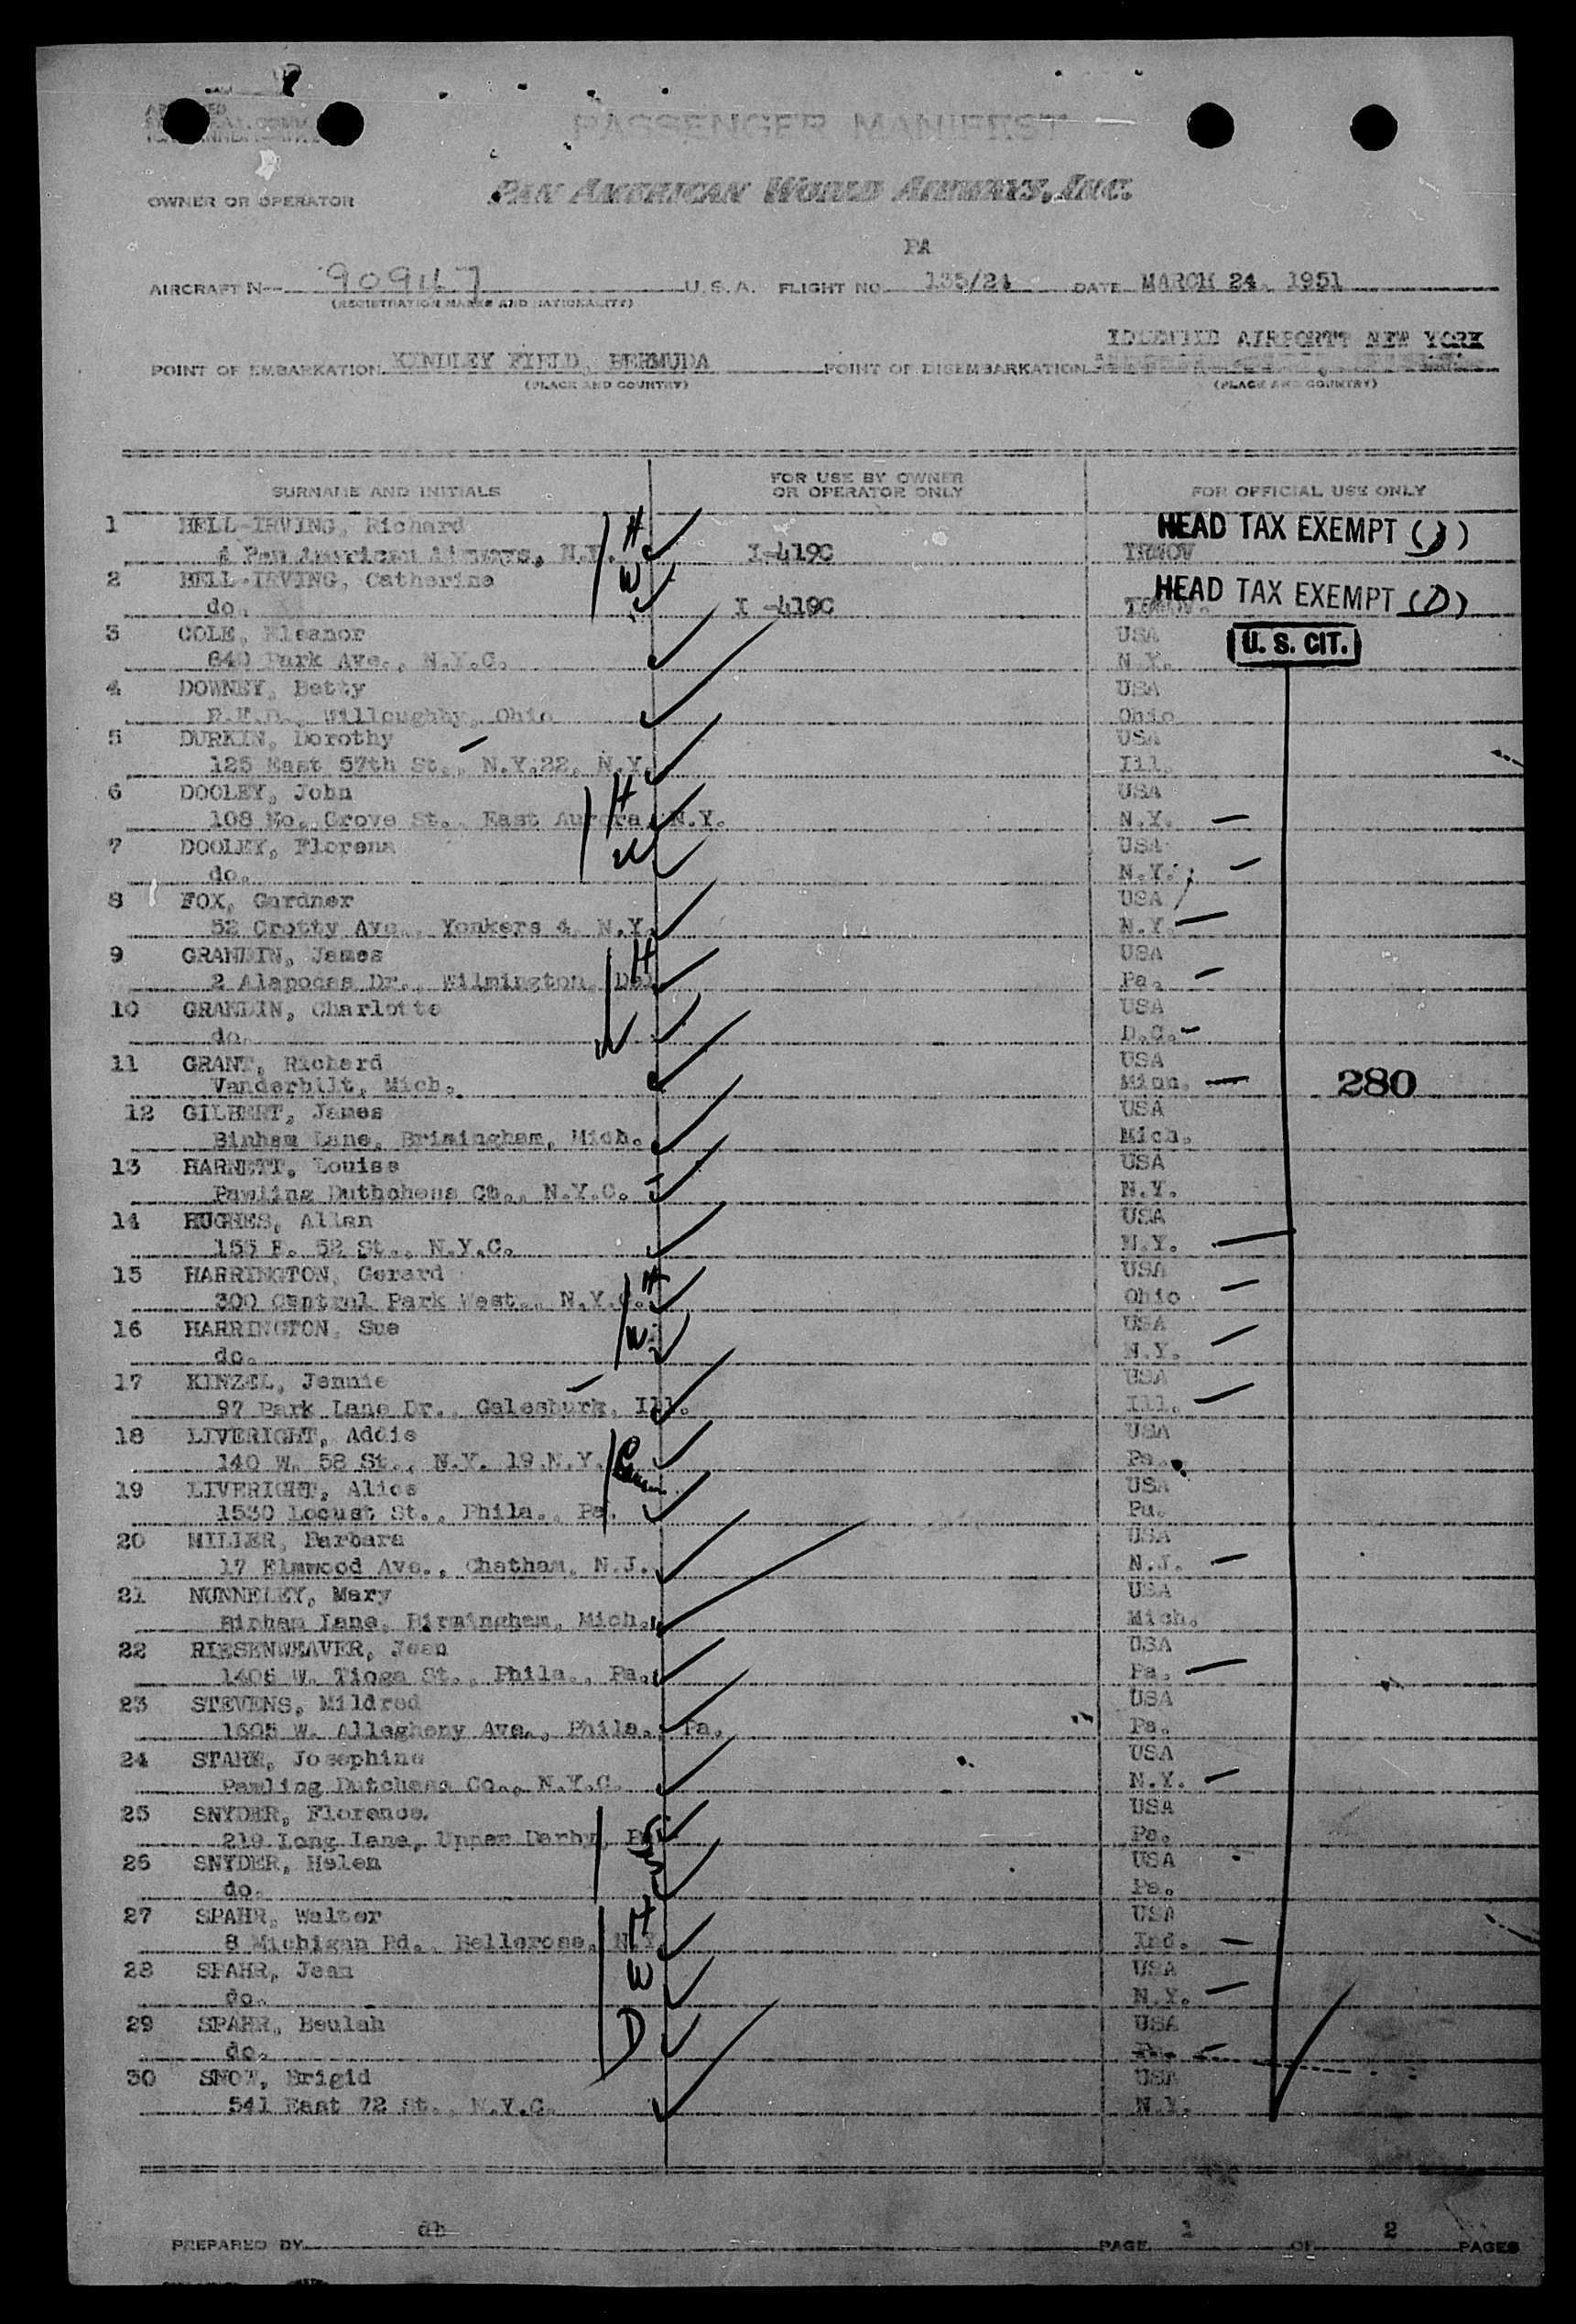 PASSENGER MANIFEST
OWNER OR OPERATOR
PAN AMERICAN WORLD AIRWAYS, INC.
PA
AIRCRAFT N- U.S.A. FLIGHT NO. DATE MARCH 24, 1951
(REGISTRATION MARKS AND NATIONALITY)
IDLEWILD AIRPORT NEW YORK
POINT OF EMBARKATION KINDLEY FIELD, BERMUDA POINT OF DISEMBARKATION
(PLACE AND COUNTRY) (PLACE AND COUNTRY)
SURNAME AND INITIALS FOR USE BY OWNER OR OPERATOR ONLY FOR OFFICIAL USE ONLY
1 BELL-IRVING, Richard H HEAD TAX EXEMPT
Pan American Airways, N.Y. I-419C
2 BELL-IRVING, Catherine W HEAD TAX EXEMPT (D)
do. I -419C
3 COLE, Eleanor USA U. S. CIT.
640 Park Ave., N.Y.C. N.Y.
4 DOWNEY, Betty USA
Willoughby, Ohio Ohio
5 DURKIN, Dorothy USA
125 East 57th St., N.Y.22, N.Y. Ill.
6 DOOLEY, John H USA
108 No. Grove St., East Aurora, N.Y. N.Y.
7 DOOLEY, Florena W USA
do. N.Y.
8 FOX, Gardner USA
52 Crotty Ave., Yonkers 4, N.Y. N.Y.
9 GRANDIN, James H USA
2 Alapocas Dr., Wilmington, Del Pa.
10 GRANDIN, Charlotte W USA
do. D.C.
11 GRANT, Richard USA
Vanderbilt, Mich. Minn. 280
12 GILBERT, James USA
Binham Lane, Brimingham, Mich. Mich.
13 HARNETT, Louise USA
Pawling Duthchess Ct., N.Y.C. N.Y.
14 HUGHES, Allan USA
155 E. 52 St., N.Y.C. N.Y.
15 HARRINGTON, Gerard H USA
300 Central Park West., N.Y.C. Ohio
16 HARRINGTON, Sue W USA
do. N.Y.
17 KINZEL, Jennie USA
97 Park Lane Dr., Galesburk, Ill. Ill.
18 LIVERIGHT, Addie USA
140 W. 58 St., N.Y. 19 N.Y. Pa.
19 LIVERIGHT, Alice USA
1530 Locust St., Phila., Pa. Pa.
20 MILLER, Barbara USA
17 Elmwood Ave., Chatham, N.J. N.J.
21 NUNNELEY, Mary USA
Binham Lane, Birmingham, Mich. Mich.
22 RIESENWEAVER, Jean USA
1406 W. Tioga St., Phila., Pa. Pa.
23 STEVENS, Mildred USA
1605 W. Allegheny Ave., Phila., Pa. Pa.
24 STARR, Josephine USA
Pawling Dutchess Co., N.Y.C. N.Y.
25 SNYDER, Florence. USA
219 Long Lane, Upper Darby, Pa Pa.
26 SNYDER, Helen USA
do. Pa.
27 SPAHR, Walter H USA
8 Michigan Rd., Bellerose, N.Y. Ind.
28 SPAHR, Jean W USA
do. N.Y.
29 SPAHR, Beulah D USA
do.
30 SNOW, Brigid USA
541 East 72 St., N.Y.C. N.Y.
PREPARED BY db PAGE 1 OF 2 PAGES